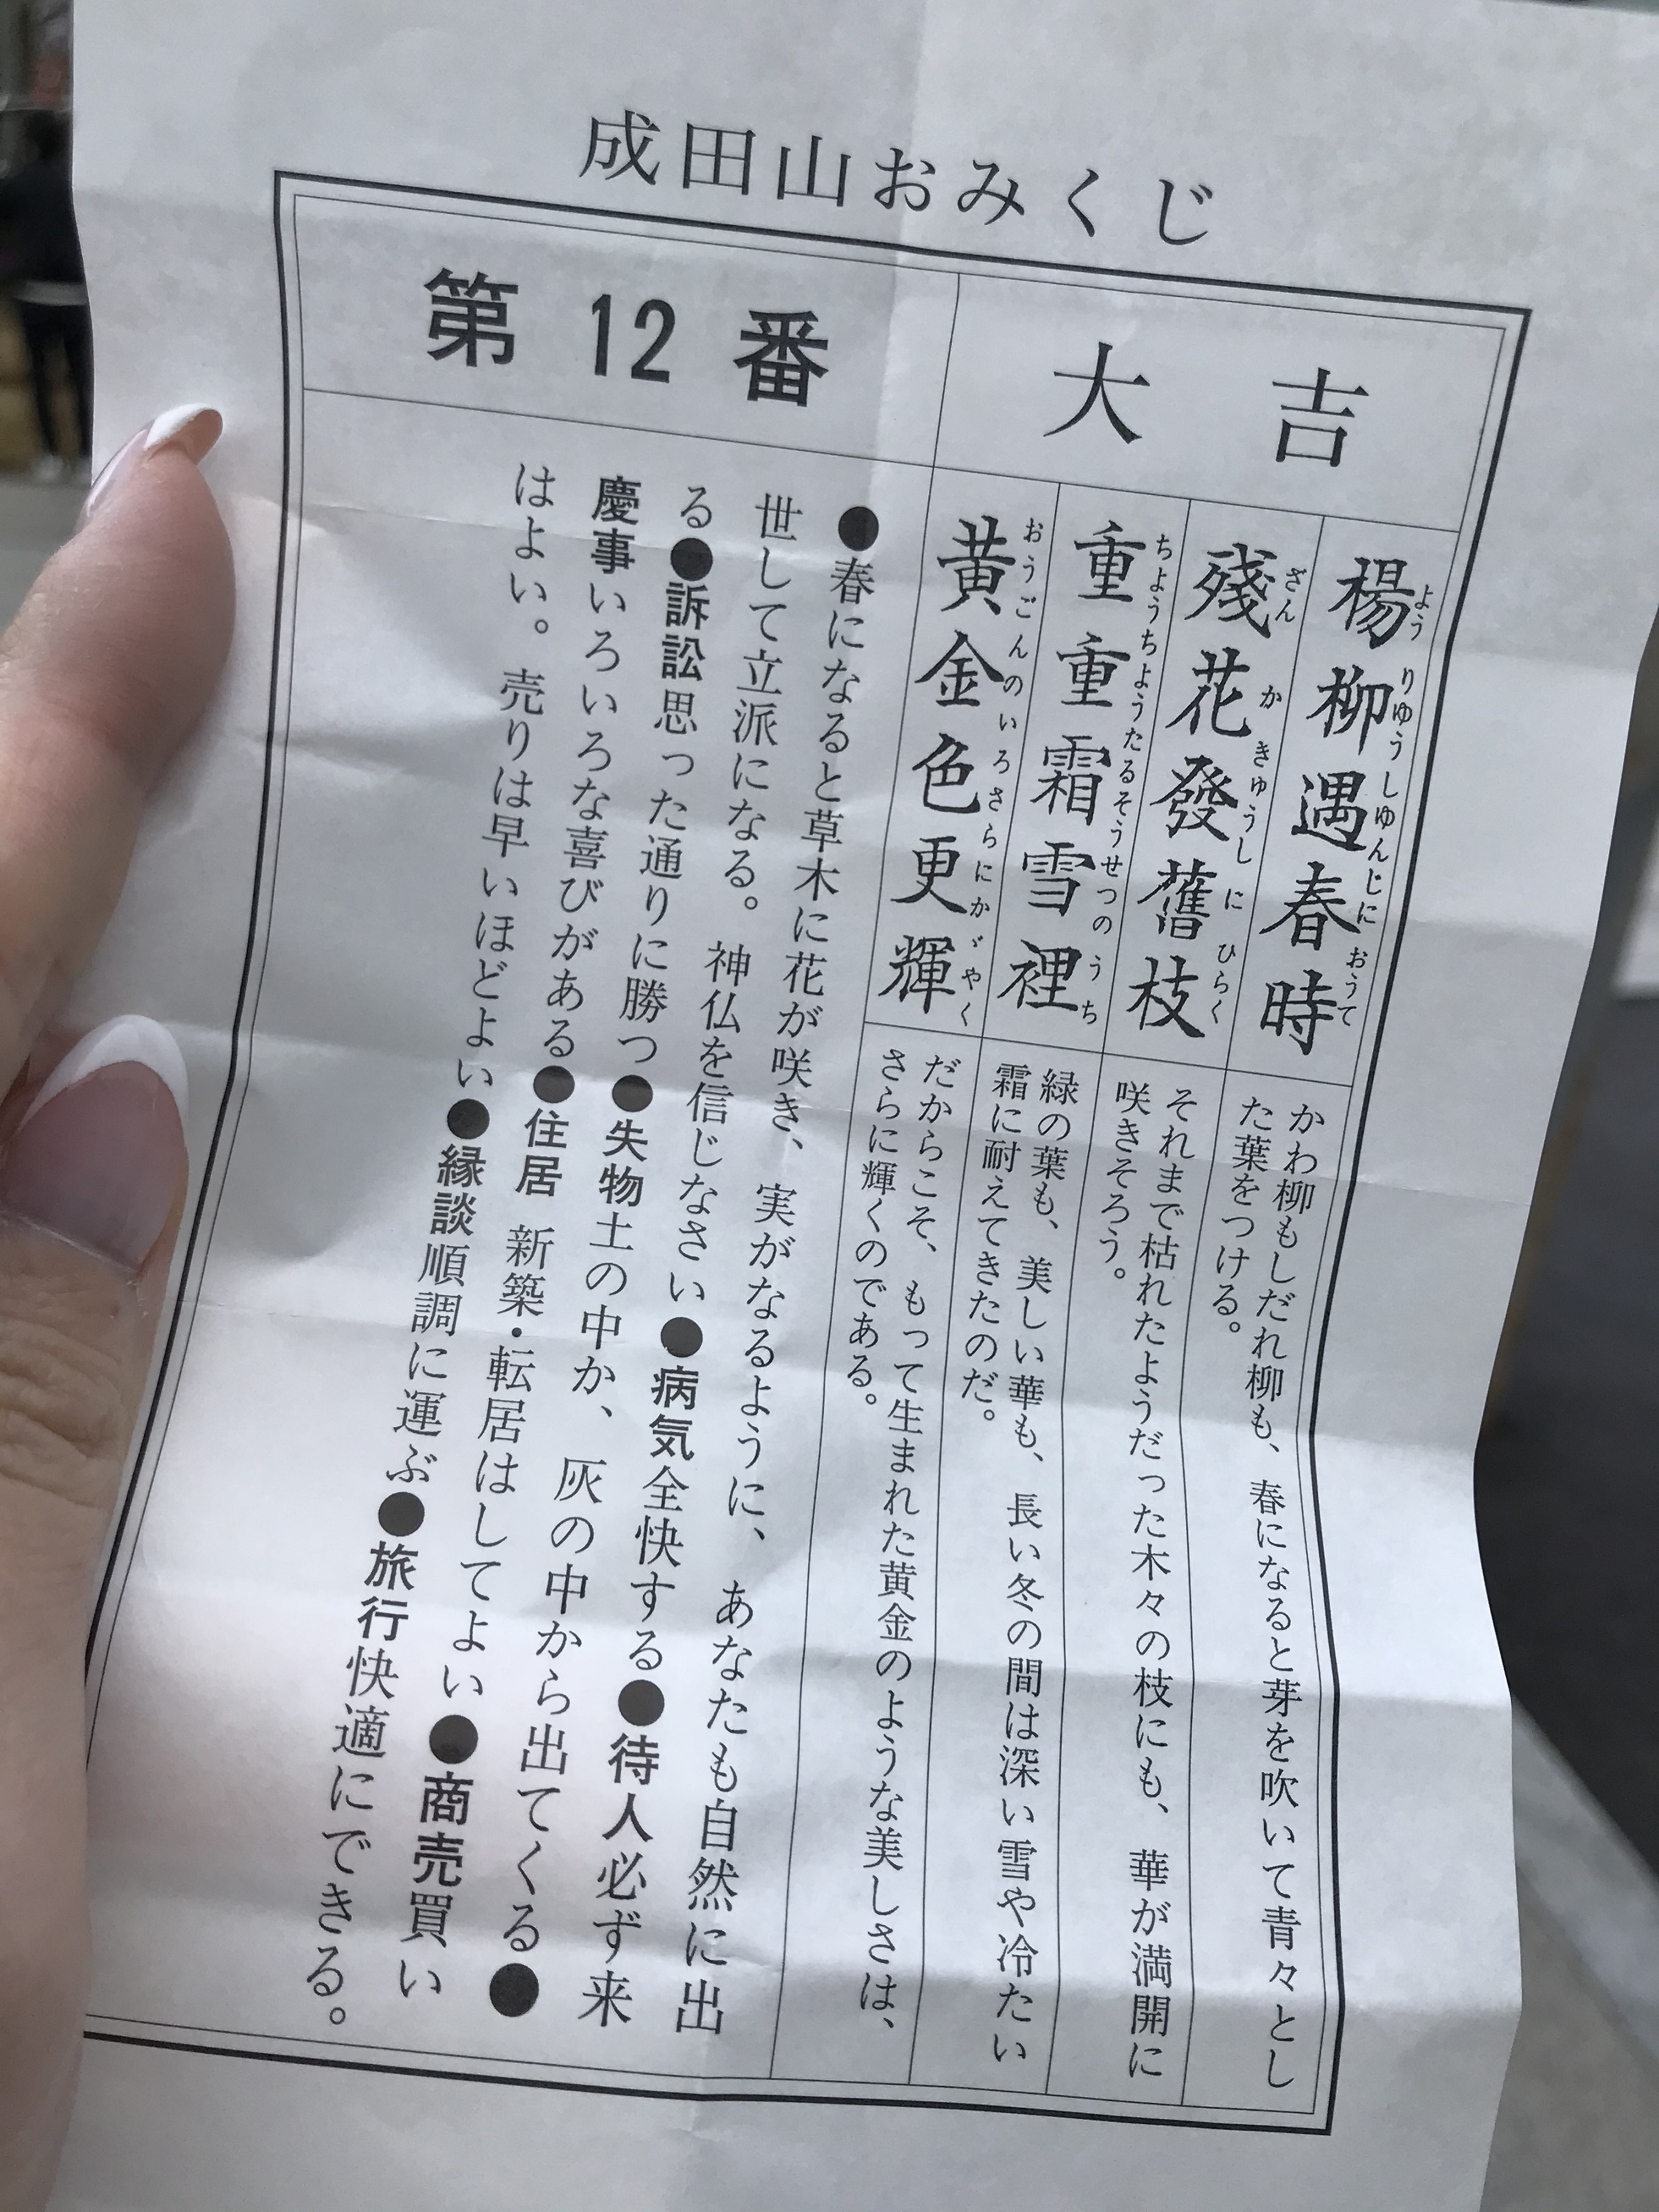 成田山おみくじ
第12番
大吉
楊柳遇春時
ようりゆうしゆんじにおうて
かわ柳もしだれ柳も、春になると芽を吹いて青々とし
た葉をつける。
殘花發舊枝
ざんかきゅうしにひらく
それまで枯れたようだった木々の枝にも、華が満開に
咲きそろう。
重重霜雪裡
ちようちようたるそうせつのうち
緑の葉も、美しい華も、長い冬の間は深い雪や冷たい
霜に耐えてきたのだ。
黄金色更輝
おうごんのいろさらにかゞやく
だからこそ、もって生まれた黄金のような美しさは、
さらに輝くのである。
●春になると草木に花が咲き、実がなるように、あなたも自然に出
世して立派になる。神仏を信じなさい●病気全快する●待人必ず来
る●訴訟思った通りに勝つ●失物土の中か、灰の中から出てくる●
慶事いろいろな喜びがある●住居 新築・転居はしてよい●商売買い
はよい。売りは早いほどよい●縁談順調に運ぶ●旅行快適にできる。